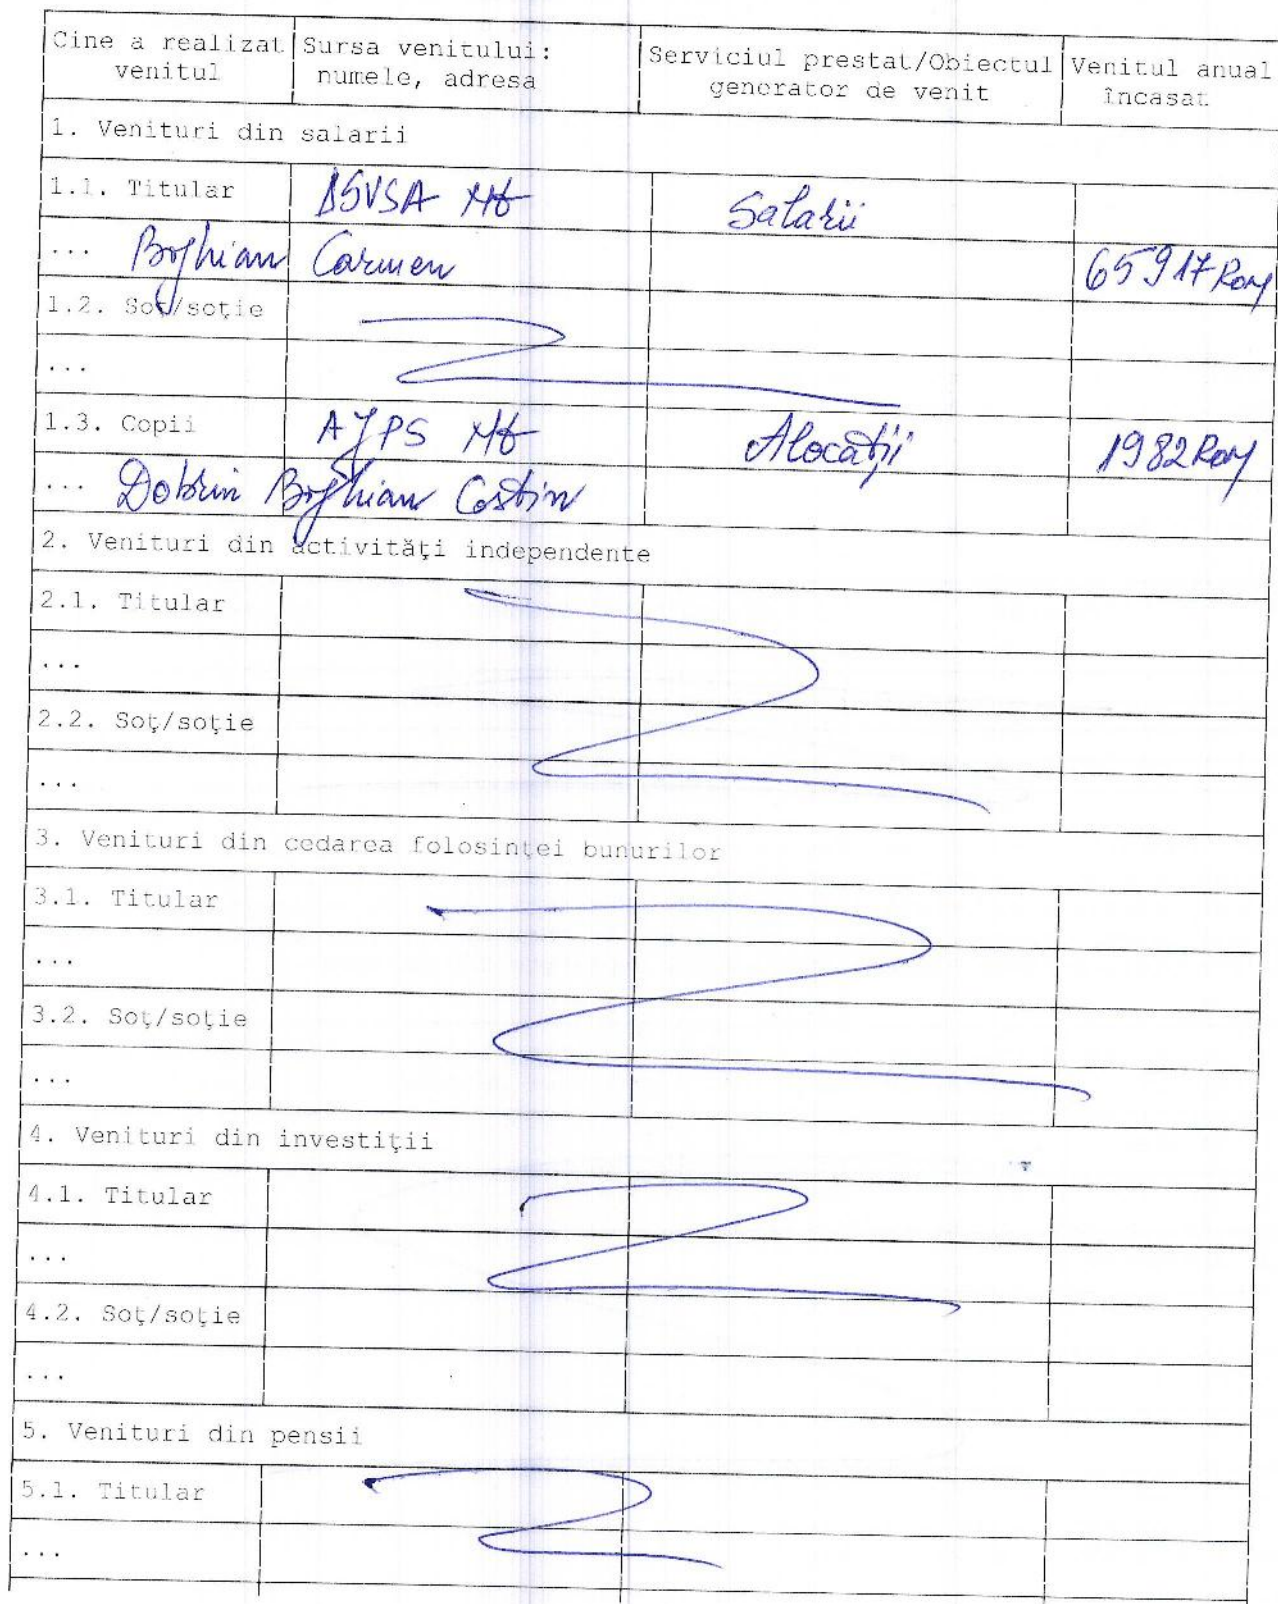 Cine a realizat venitul | Sursa venitului: numele, adresa | Serviciul prestat/Obiectul generator de venit | Venitul anual încasat
1. Venituri din salarii
1.1. Titular | DSVSA Mh | Salarii
... Boghian Carmen | 65917 Ron
1.2. Soţ/soţie
...
1.3. Copii | AJPS Mh | Alocaţii | 1982 Ron
... Dobrin Boghian Costin
2. Venituri din activităţi independente
2.1. Titular
...
2.2. Soţ/soţie
...
3. Venituri din cedarea folosinţei bunurilor
3.1. Titular
...
3.2. Soţ/soţie
...
4. Venituri din investiţii
4.1. Titular
...
4.2. Soţ/soţie
...
5. Venituri din pensii
5.1. Titular
...